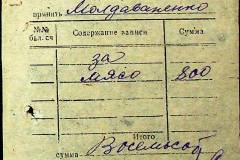 принять Молдаваненко
№№ Содержание записи Сумма
бал. сч
за
мясо 800
Итого
сумма Восемьсот